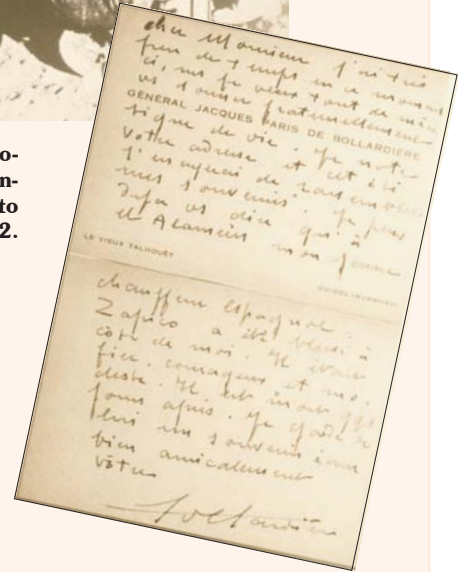 o-
n-
to
2.
cher Monsieur j'ai très
peu de temps en ce moment
ci, mais je veux tout de même
vs donner fraternellement
GÉNÉRAL JACQUES PARIS DE BOLLARDIÈRE
signe de vie. Je note
votre adresse et cet été
j'essayerai de rassembler
mes souvenirs. Je peux
déjà vs dire qu'à
El Alamein mon jeune
LE VIEUX TALHOUËT
chauffeur espagnol
Zapico a été blessé à
côté de moi. Il était
fier, courageux et mo-
deste. Il est mort qqs
jours après. Je garde de
lui un souvenir ému
bien amicalement
vôtre
Bollardière